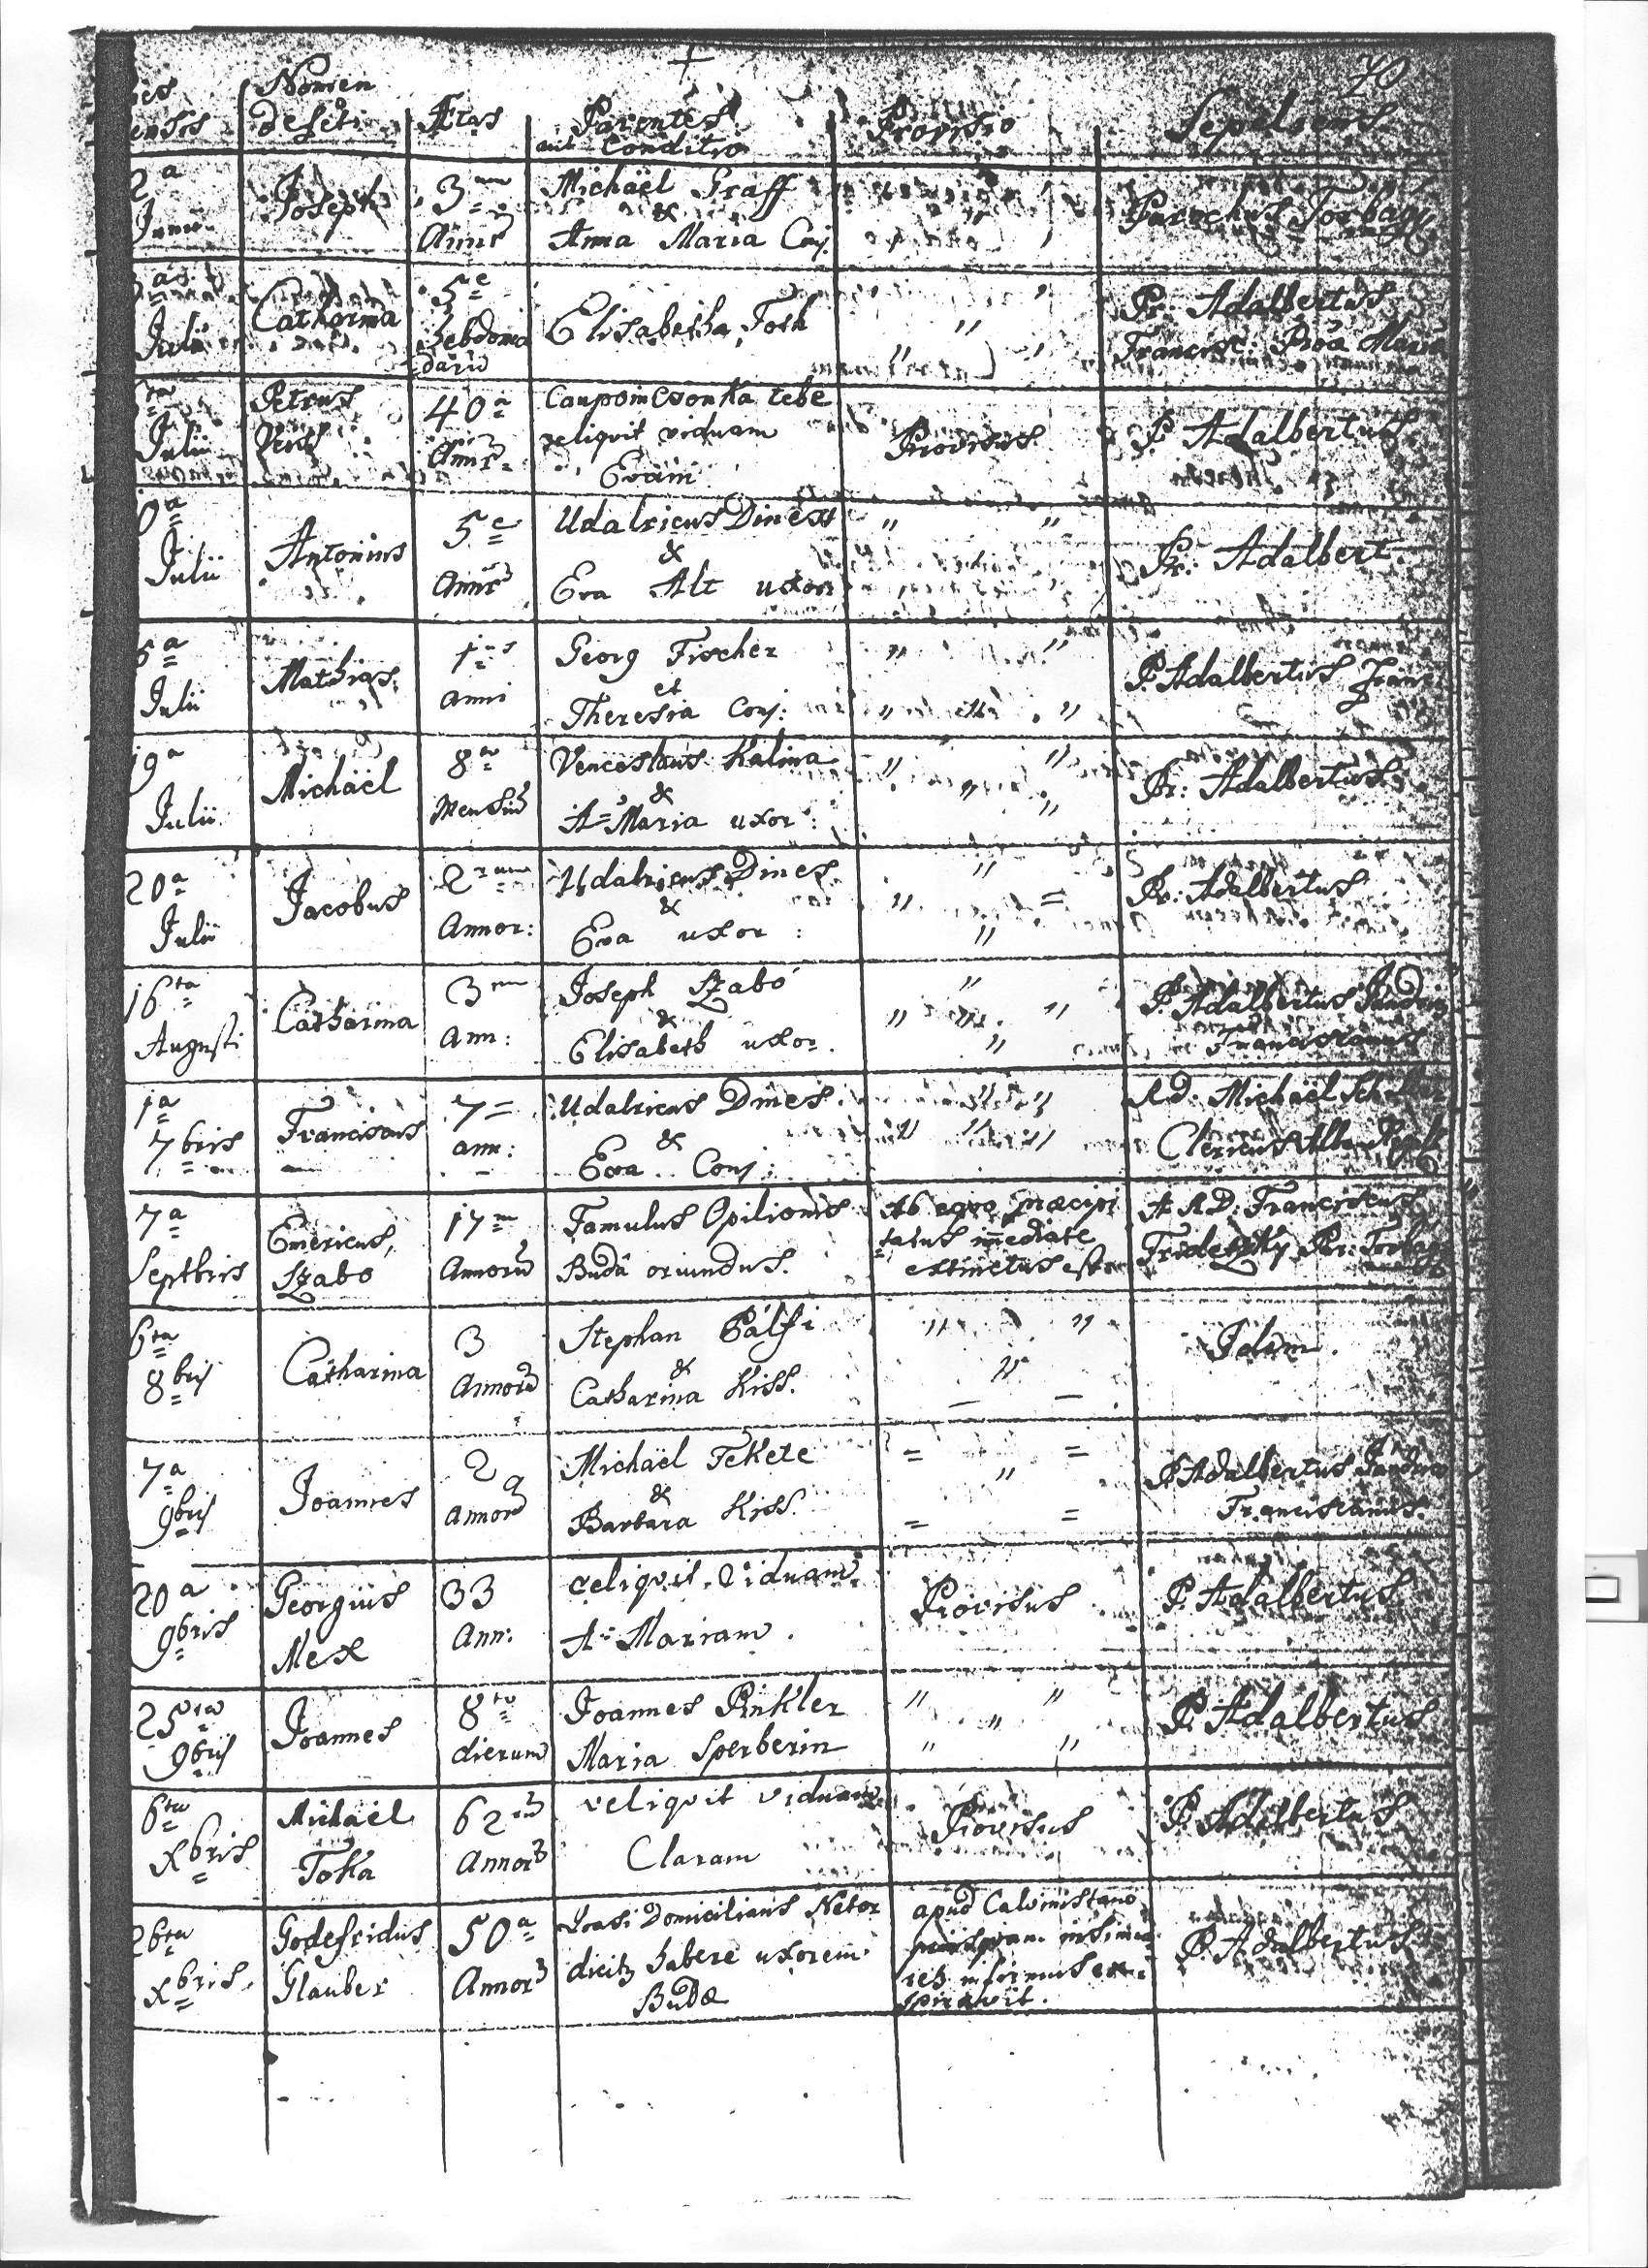 70
Nomen
defcti
Ætas
Parentes
aut Conditio
Provisio
Sepeliens
2a
Junii
Joseph
3um
Annor
Michaël Graff
&
Anna Maria Conj:
Parochus Torbagy
Julii
Catharina
5e
hebdoma
darū
Elisabetha Toth
Pr: Adalbertus
Francisc:
Julii
Petrus
40a
Annor
Caupo in Csonka tebe
reliquit viduam
Evam
Provisus
P. Adalbertus
0a
Julii
Antonius
5e
Annor
Udalricus Diness
&
Eva Alt uxor
Pr: Adalbert
5a
Julii
Mathias
1us
anni
Georg Fischer
et
Theresia Conj:
P. Adalbertus Franc
19a
Julii
Michaël
8a
Mensiū
Venceslaus Kalina
&
A= Maria uxor:
Pr: Adalbertus
20a
Julii
Jacobus
2rum
Annor:
Udalricus Dines
&
Eva uxor:
Pr: Adalbertus
16ta
Augusti
Catharina
3um
Ann:
Joseph Szabó
&
Elisabeth uxor.
P. Adalbertus
Franciscanus
1a
7bris
Franciscus
7=
ann:
Udalricus Dines
&
Eva Conj:
A.D. Michaël
Clericus Albae
7a
Septbris
Emericus
Szabo
17m
Annorū
Famulus Opilionis
Budâ oriundus.
Ab equo præcipi
tatus imediate
extinctus est
A. A.D. Franciscus
Fridetzky Par: Torbagy
6ta
8bris
Catharina
3
Annorū
Stephan Pálfi
&
Catharina Kiss.
Idem.
7a
9bris
Joannes
2
Annorū
Michaël Fekete
&
Barbara Kiss.
P. Adalbertus
Franciscanus.
20a
9bris
Georgius
Mex
33
Ann:
reliquit Viduam
A= Mariam.
Provisus
P. Adalbertus
25ta
9bris
Joannes
8to
dierum
Joannes Pinkler
Maria Sperberin
P. Adalbertus
6ta
Xbris
Michaël
Toka
62
Annor
reliquit viduam
Claram
Provisus
P. Adalbertus
26ta
Xbris
Godefridus
Glauber
50a
Annor
Domicilians
dicitr habere uxorem
Budæ
apud Calvinistano
infirmus ex=
spiravit.
P. Adalbertus